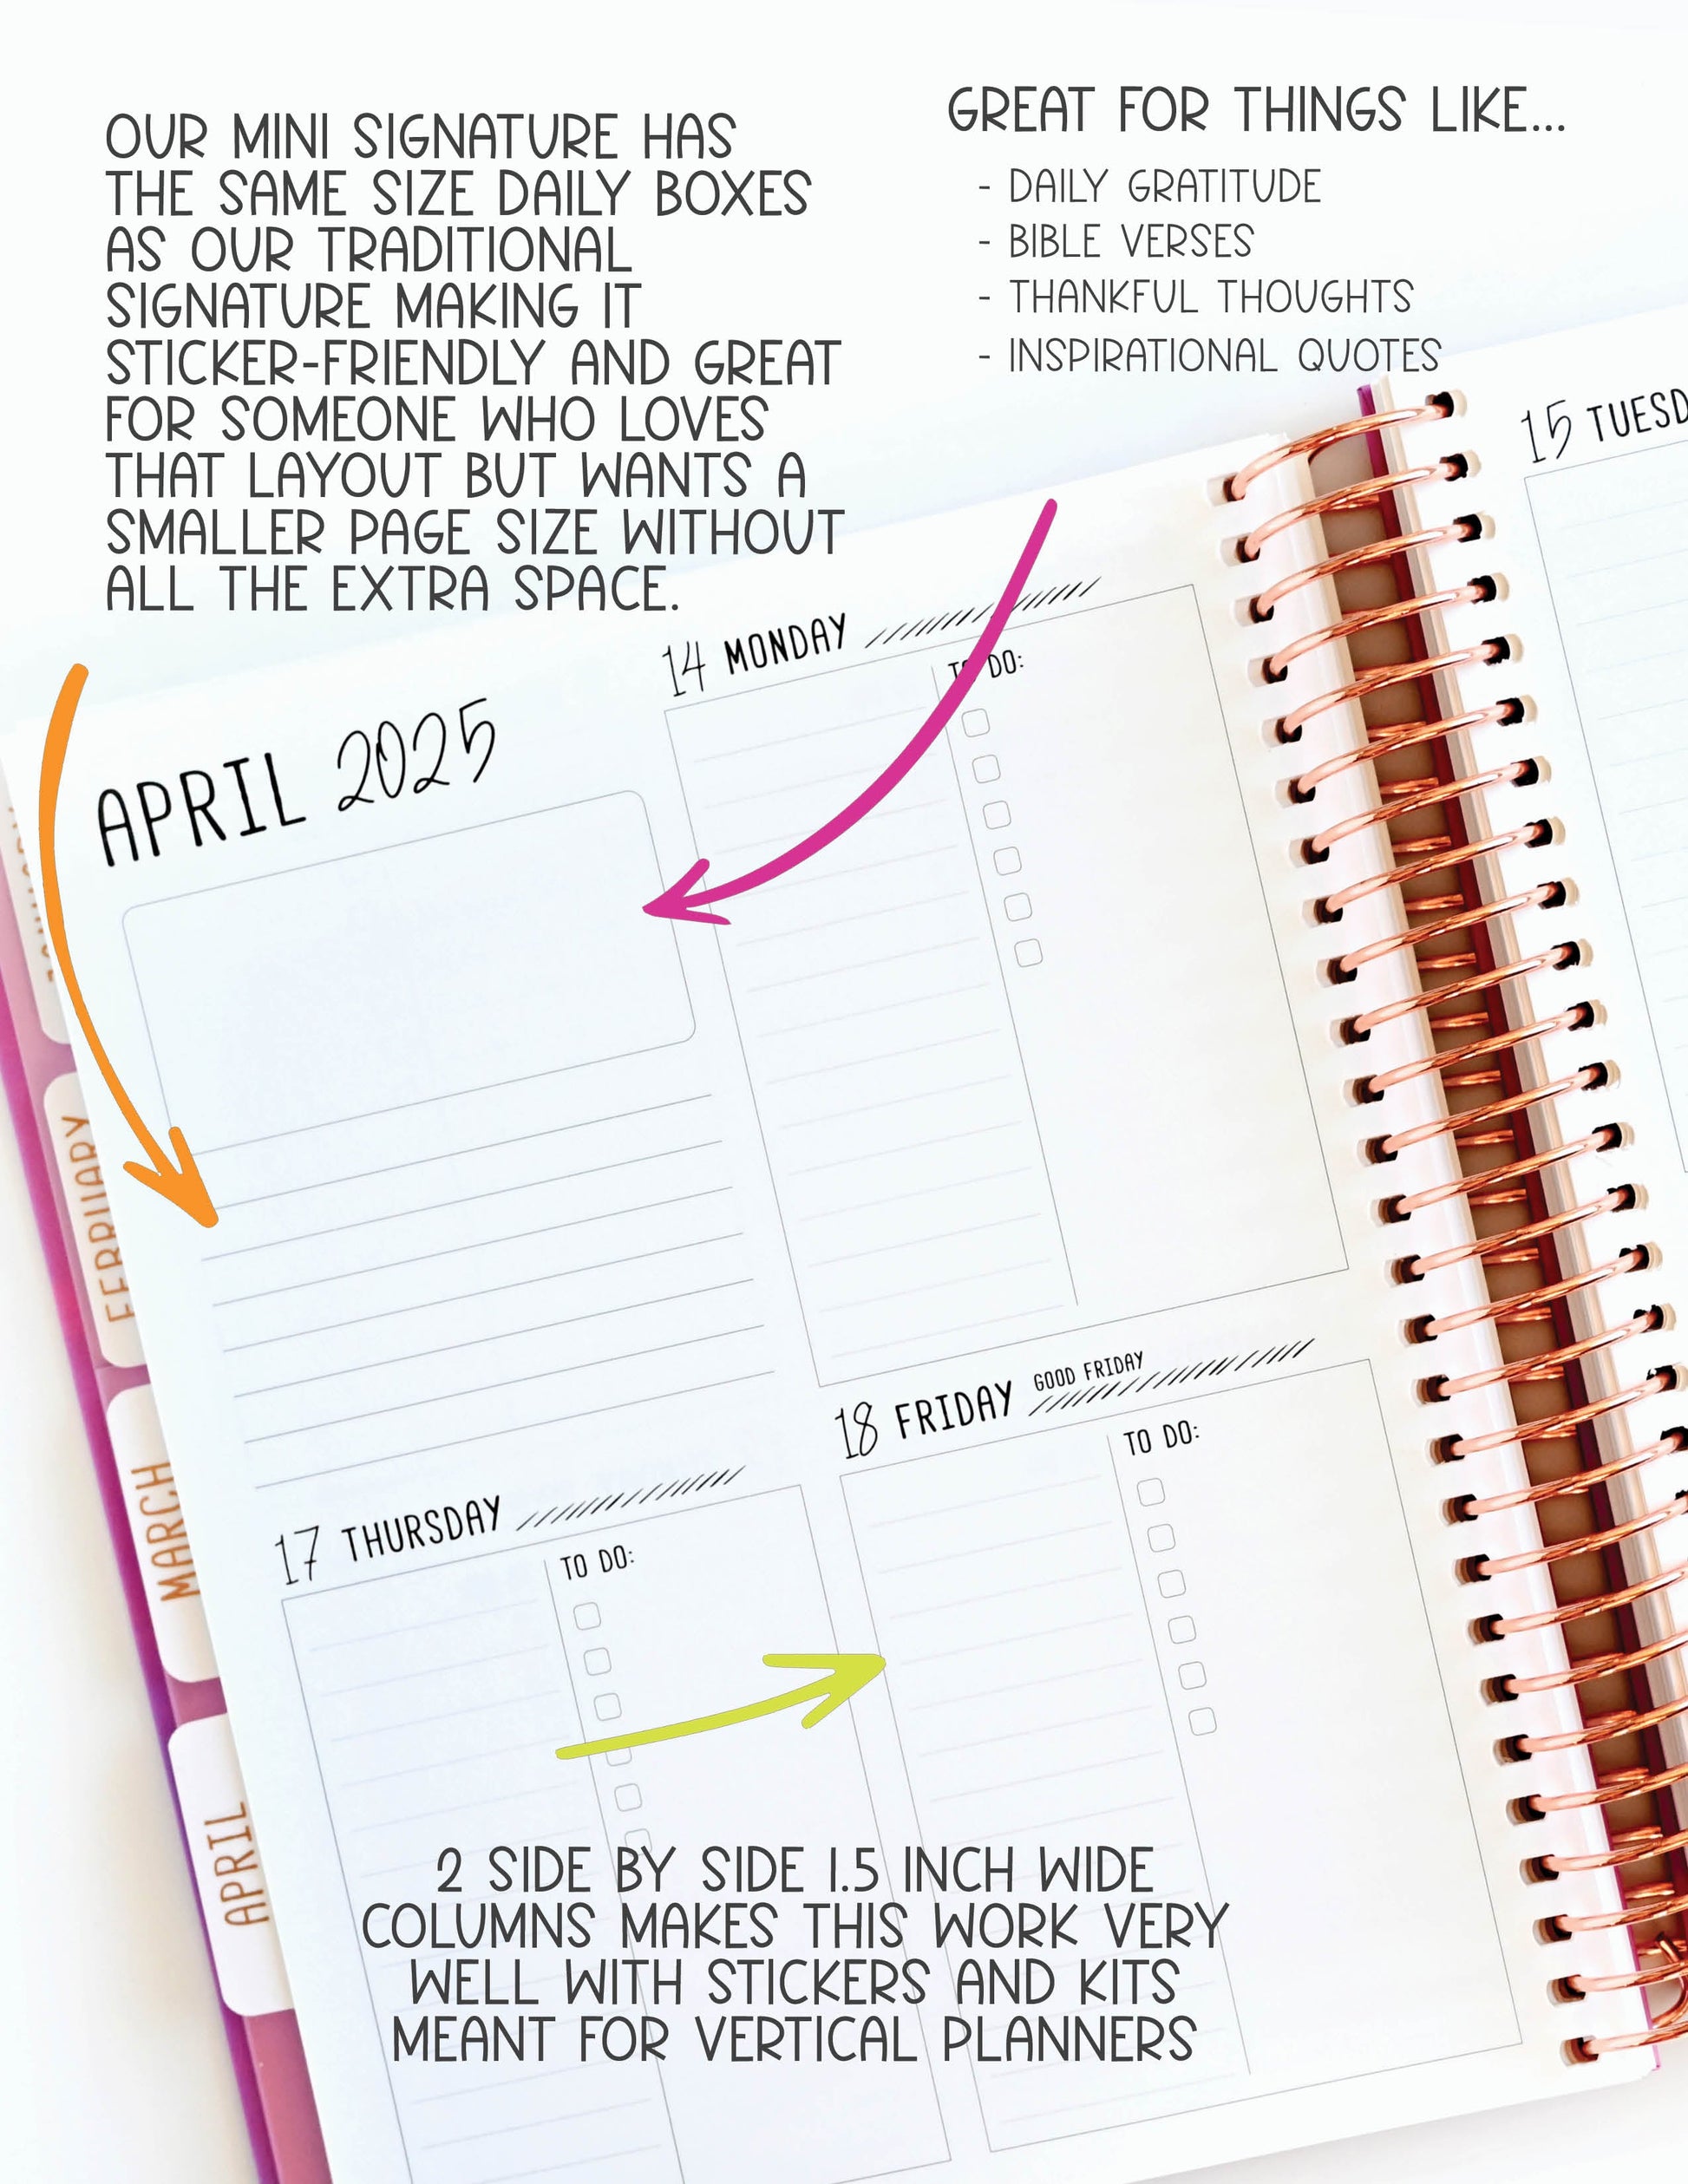 OUR MINI SIGNATURE HAS
THE SAME SIZE DAILY BOXES
AS OUR TRADITIONAL
SIGNATURE MAKING IT
STICKER-FRIENDLY AND GREAT
FOR SOMEONE WHO LOVES
THAT LAYOUT BUT WANTS A
SMALLER PAGE SIZE WITHOUT
ALL THE EXTRA SPACE.
GREAT FOR THINGS LIKE...
- DAILY GRATITUDE
- BIBLE VERSES
- THANKFUL THOUGHTS
- INSPIRATIONAL QUOTES
APRIL 2025
14 MONDAY
TO DO:
15 TUESD
17 THURSDAY
TO DO:
18 FRIDAY GOOD FRIDAY
TO DO:
FEBRUARY
MARCH
APRIL
2 SIDE BY SIDE 1.5 INCH WIDE
COLUMNS MAKES THIS WORK VERY
WELL WITH STICKERS AND KITS
MEANT FOR VERTICAL PLANNERS